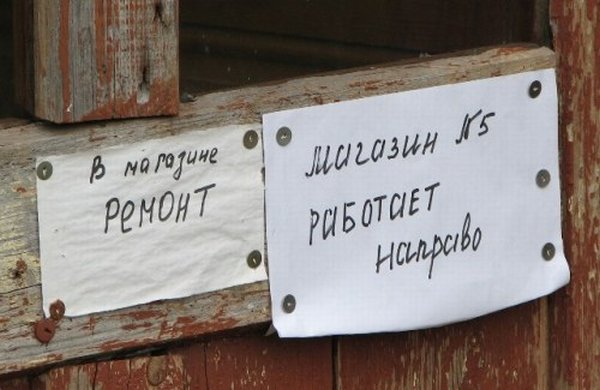 В магазине
РЕМОНТ
магазин №5
РАБОТАЕТ
направо